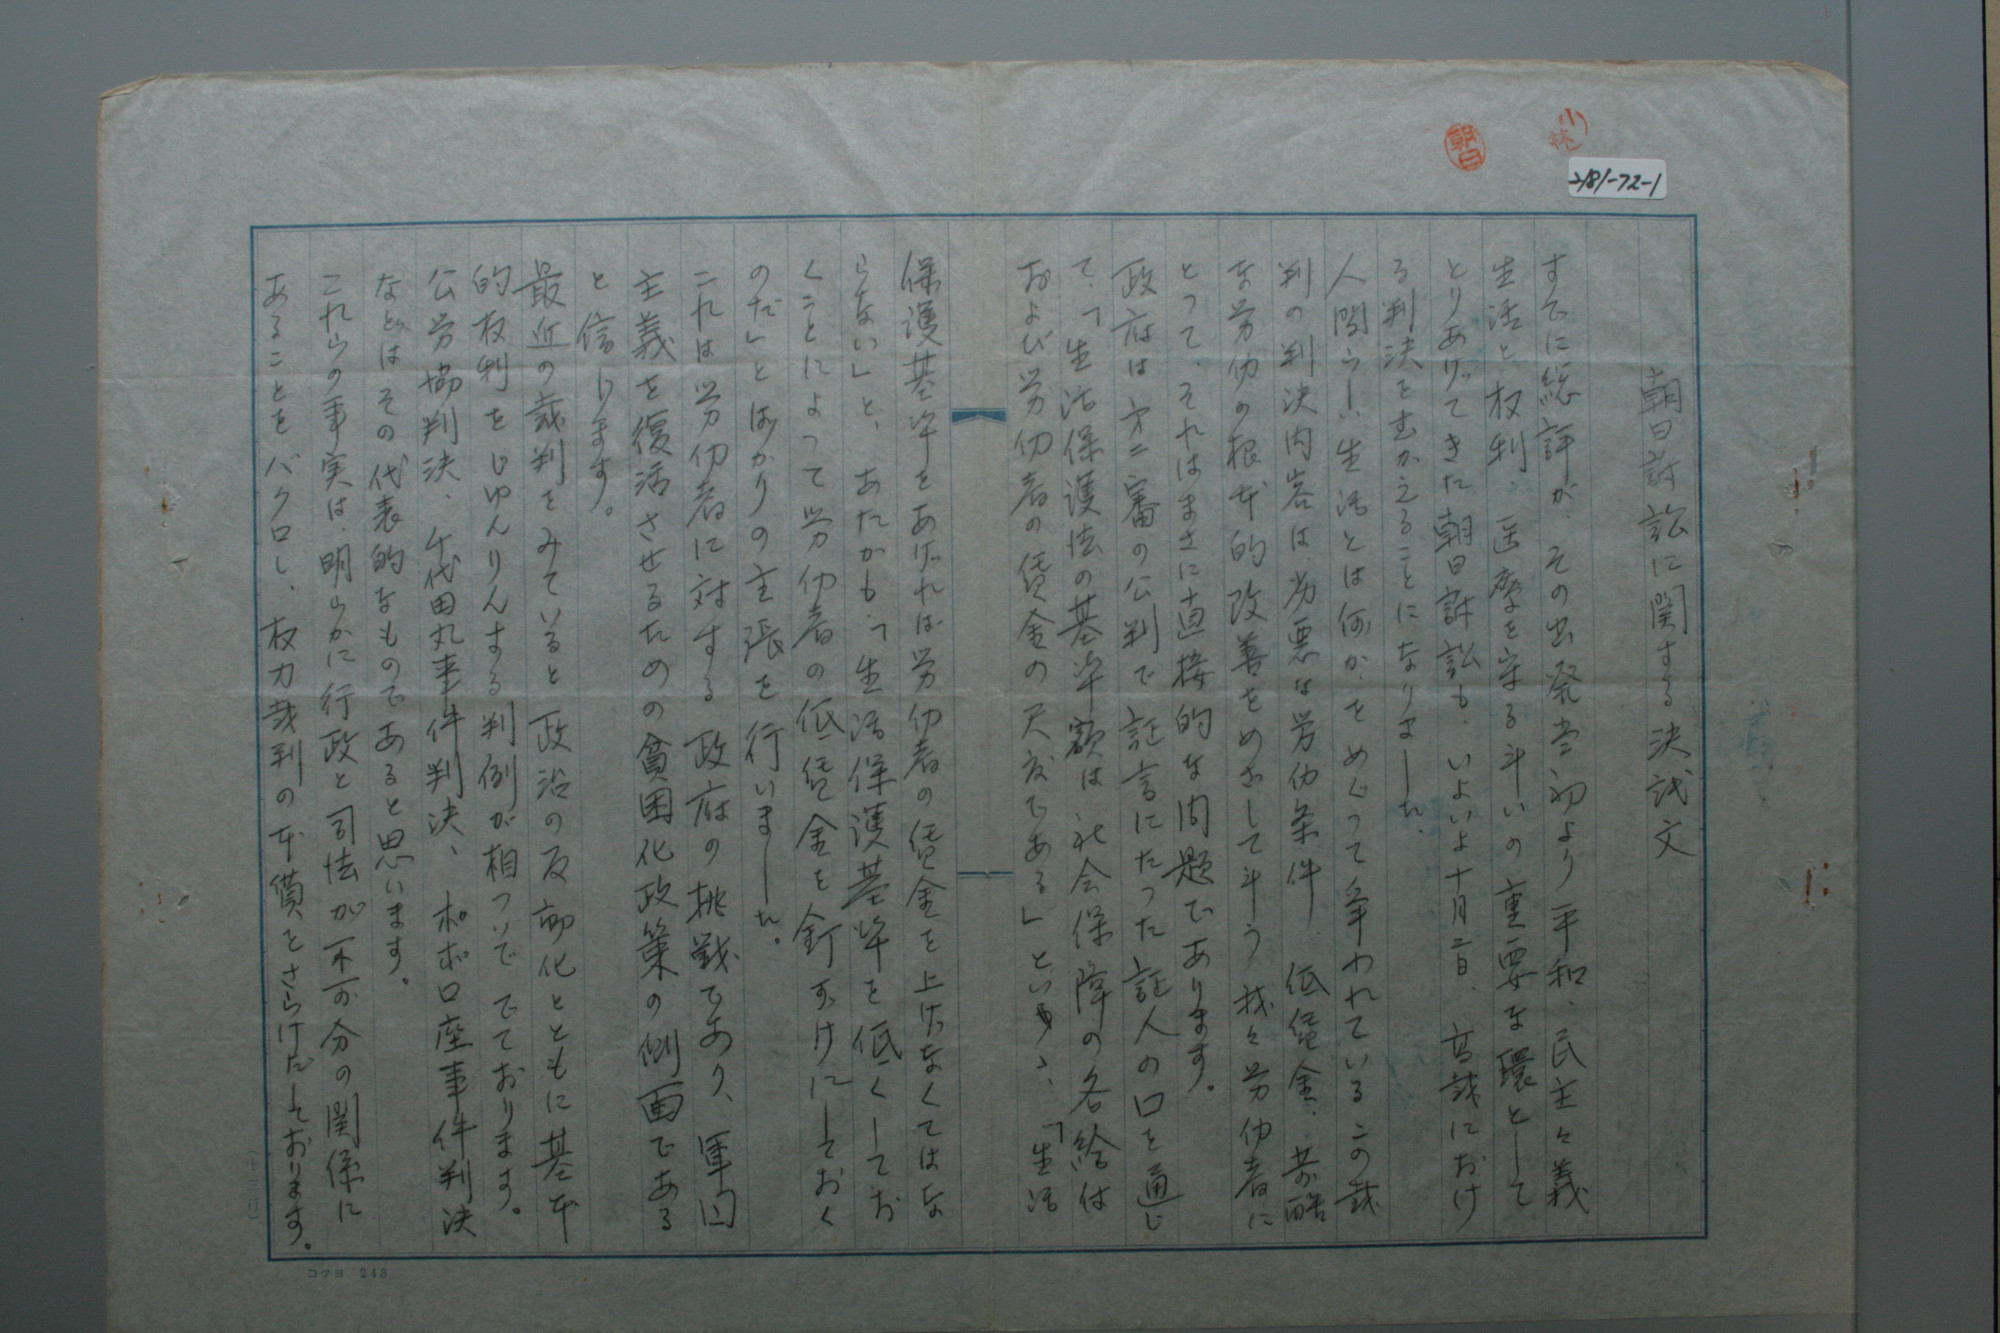 小林
朝日
2181-72-1
朝日訴訟に関する決議文
すでに総評が、その出発当初より平和、民主々義
生活と权利、医療を守る斗いの重要な環として
とりあげてきた朝日訴訟も、いよいよ十月二日、高裁におけ
る判決をむかえることになりました。
人間らしい生活とは何か、をめぐって争われているこの裁
判の判決内容は劣悪な労仂条件、低賃金、苛酷
な労仂の根本的改善をめざして斗う我々労仂者に
とって、それはまさに直接的な問題であります。
政府は才二審の公判で証言にたった証人の口を通じ
て、「生活保護法の基準額は社会保障の各給付
および労仂者の賃金の尺度である」といゝ、「生活
保護基準をあげれば労仂者の賃金を上げなくてはな
らない」と、あたかも「生活保護基準を低くしてお
くことによって労仂者の低賃金を釘ずけにしておく
のだ」とばかりの主張を行いました。
これは労仂者に対する政府の挑戦であり、軍国
主義を復活させるための貧困化政策の側面である
と信じます。
最近の裁判をみていると政治の反動化とともに基本
的权利をじゆんりんする判例が相ついででております。
公労協判決、千代田丸事件判決、ポポロ座事件判決
などはその代表的なものであると思います。
これらの事実は、明らかに行政と司法が不可分の関係に
あることをバクロし、权力裁判の本質をさらけだしております。
コクヨ 243